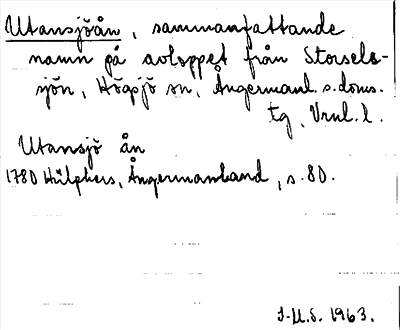 Utansjöån, sammanfattande
namn på avloppet från Storsele-
sjön, Högsjö sn, Ångermanl. s. doms.
tg, Vrnl. l.
Utansjö ån
1780 Hülphers, Ångermanland, s. 80.
J-U.S. 1963.